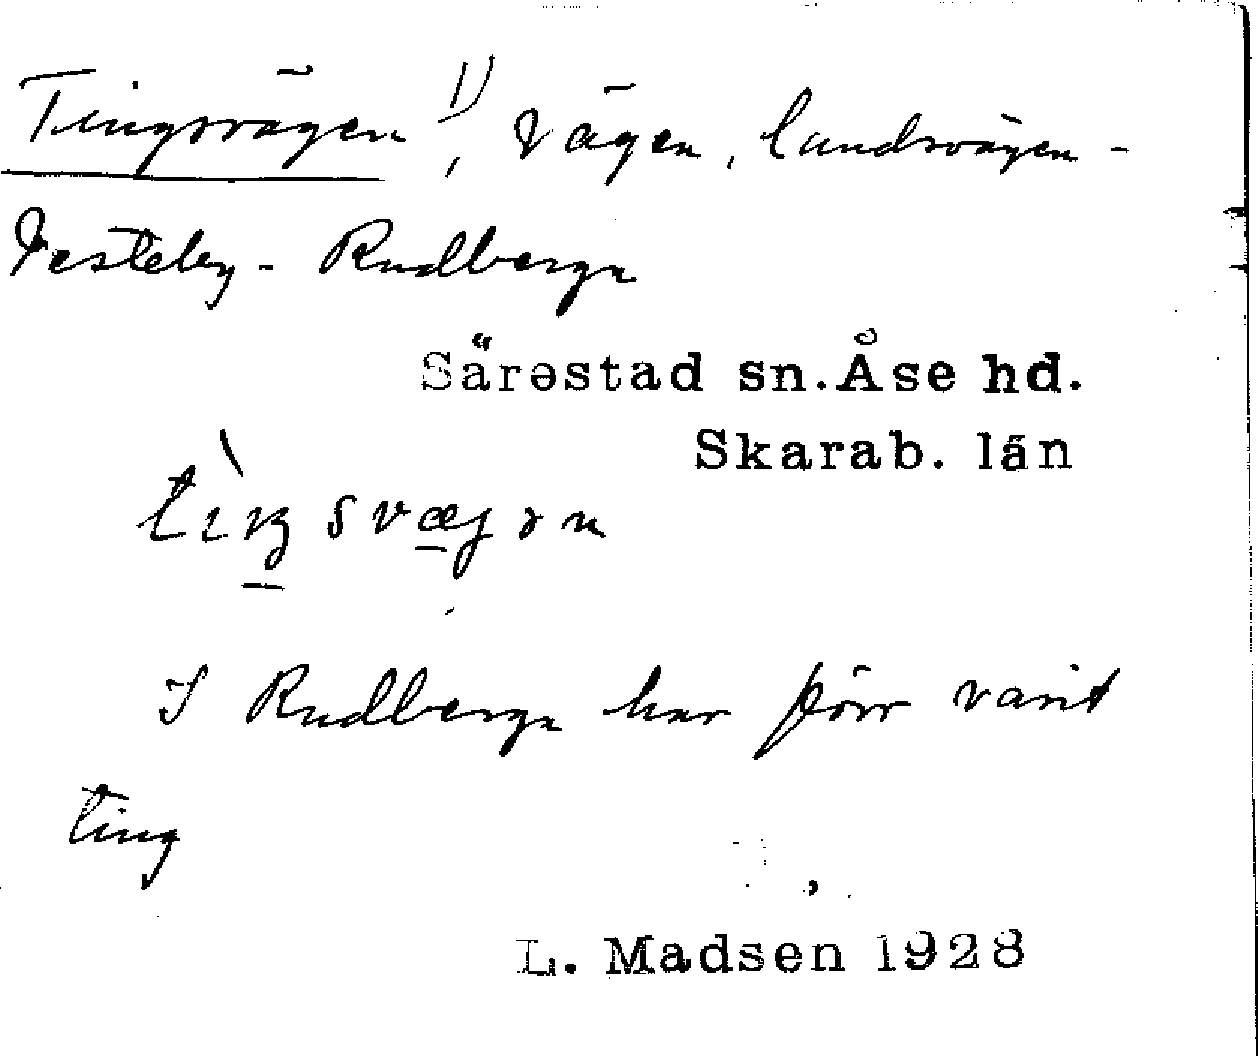 Tingsvägen 1), vägen, landsvägen -
Västeby - Rudberga
Särestad sn. Åse hd.
Skarab. län
tìŋsvægən
I Rudberga har förr varit
ting
L. Madsen 1928